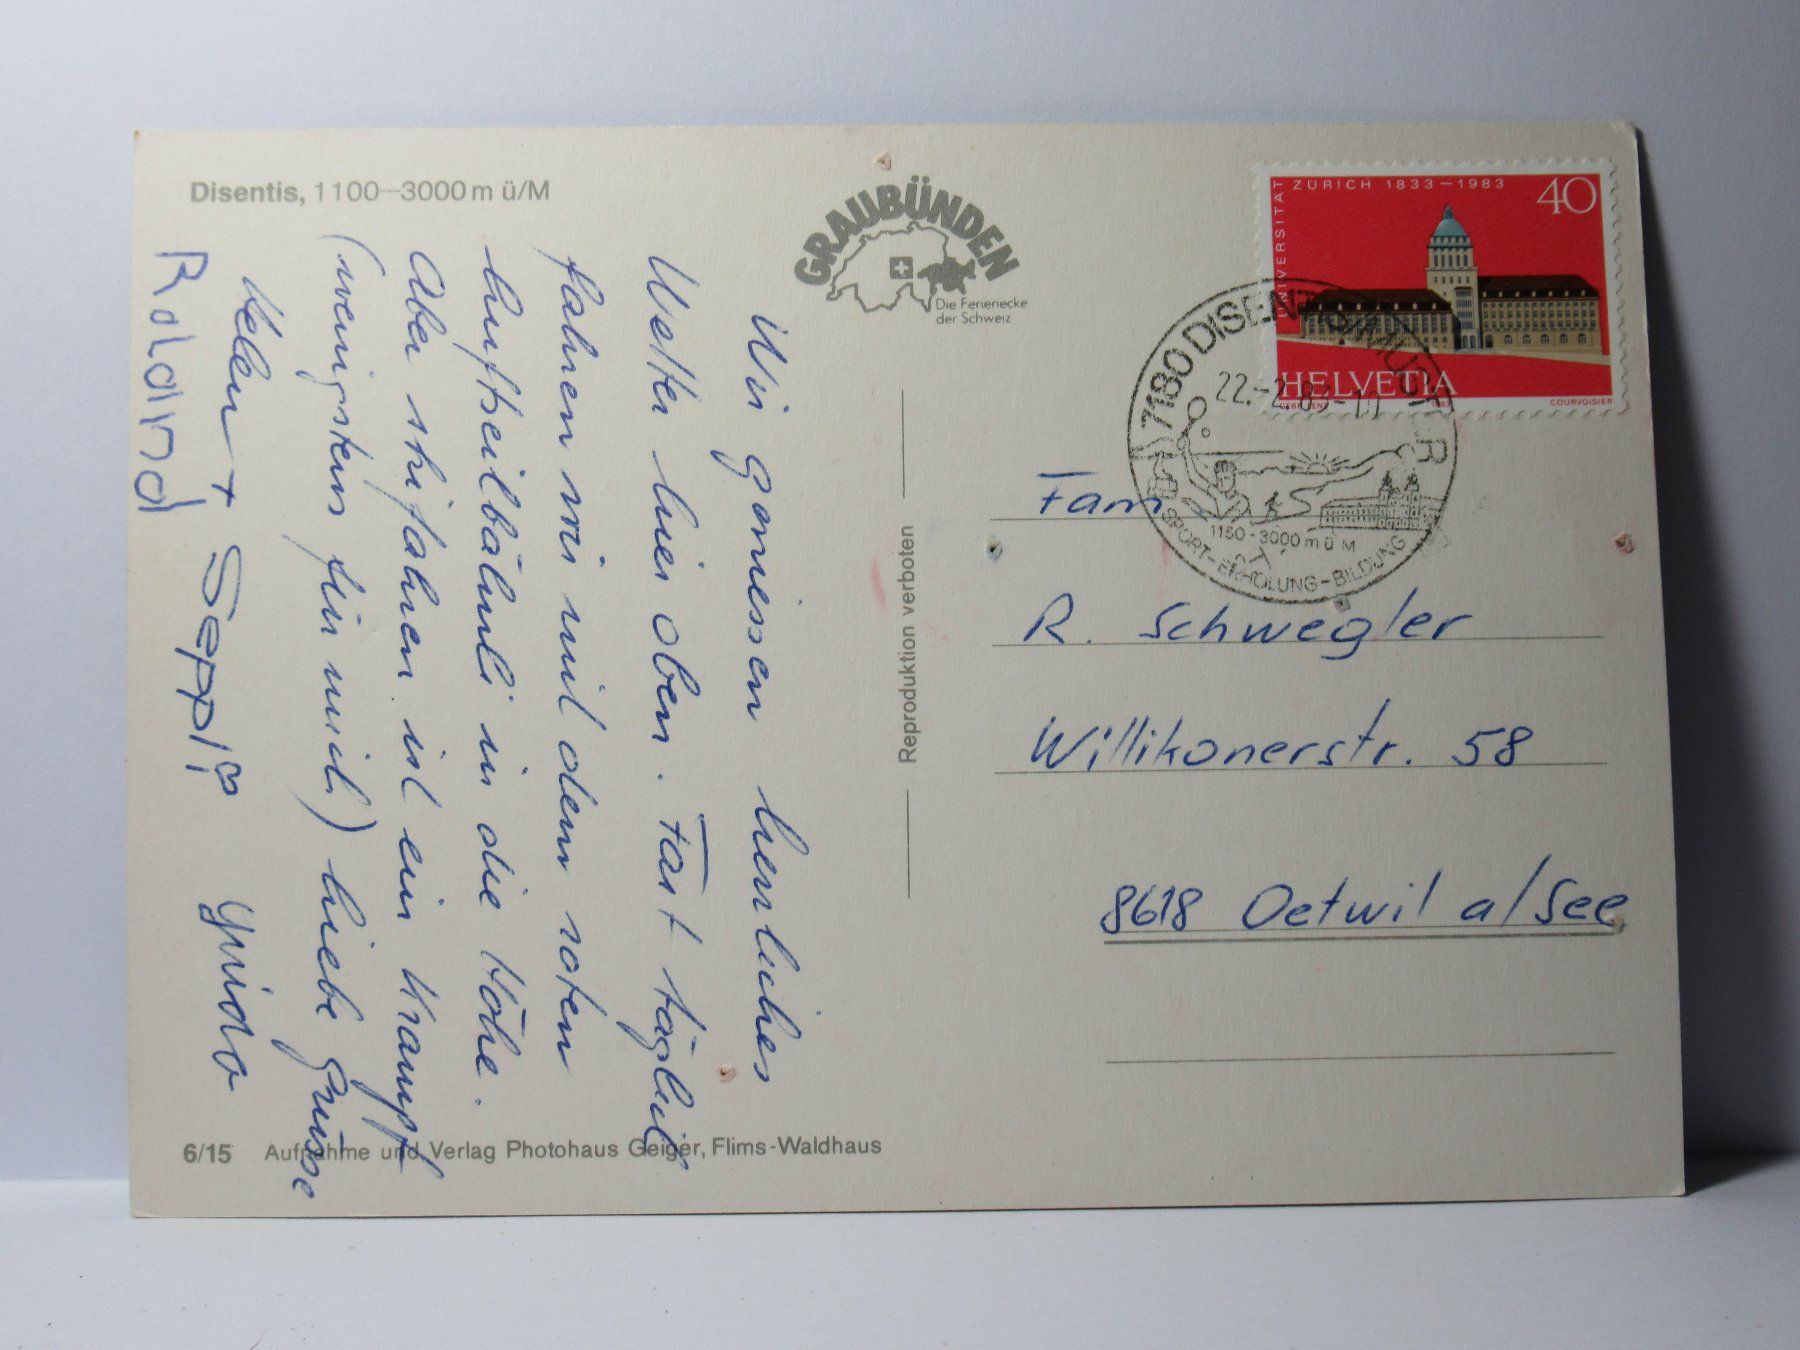 Disentis, 1100–3000 m ü/M
GRAUBÜNDEN
Die Ferienecke
der Schweiz
Wir geniessen herrliches
Wetter hier oben. Fast täglich
fahren wir mit dem roten
Luftseilbähnli in die Höhe.
Aber skifahren ist ein Krampf
(wenigstens für mich) Liebe Grüsse
+ Seppli Guido
Roland
6/15 Aufnahme und Verlag Photohaus Geiger, Flims-Waldhaus
Reproduktion verboten
UNIVERSITÄT ZÜRICH 1833–1983
40
HELVETIA
COURVOISIER
7180 DISENTIS/MUSTER
22.-2.83-
1150-3000 m ü M
SPORT-ERHOLUNG-BILDUNG
Fam
R. Schwegler
Willikonerstr. 58
8618 Oetwil a/See